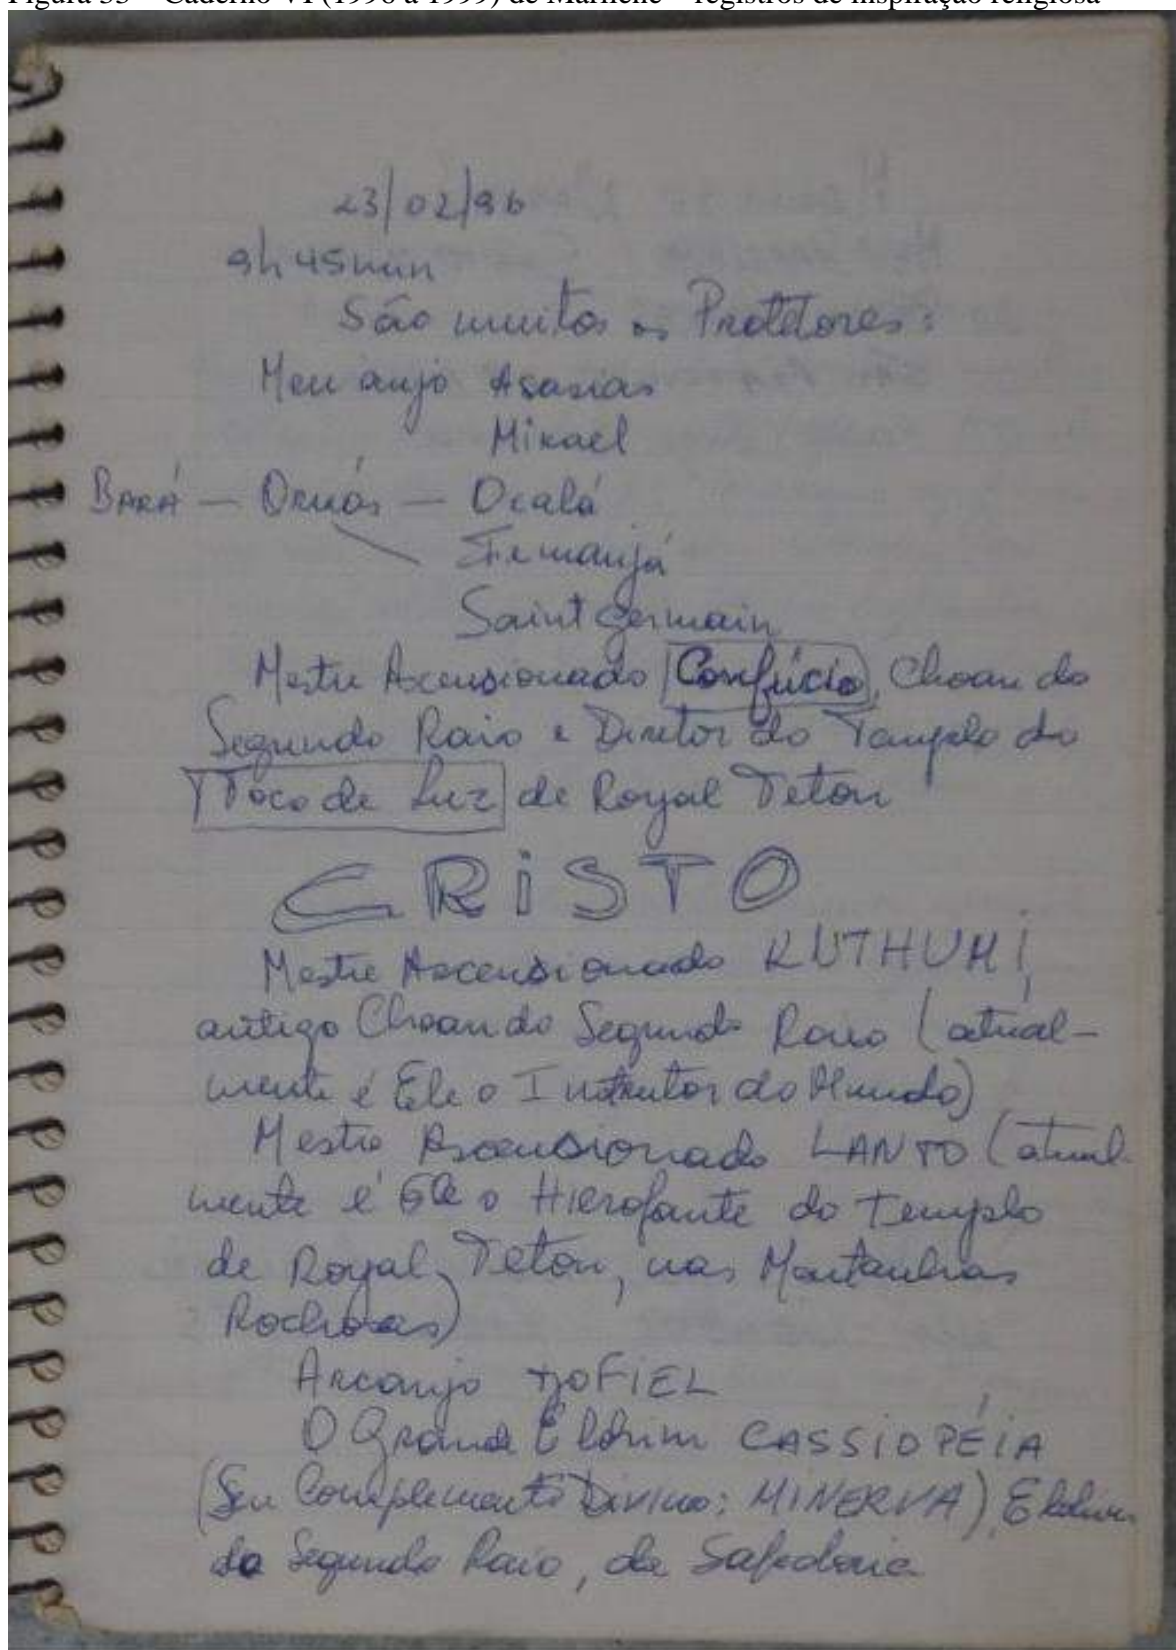 Figura 33 – Caderno VI (1996 a 1999) de Marilene – registros de inspiração religiosa
23/02/96
9h 45min
São muitos os Protetores:
Meu anjo Asasias
Mikael
BARÁ — Orixás — Oxalá
Iemanjá
Saint Germain
Mestre Ascensionado Confúcio, Choan do
Segundo Raio e Diretor do Templo do
Foco de Luz de Royal Teton
CRISTO
Mestre Ascensionado KUTHUMI,
antigo Choan do Segundo Raio (atual-
mente é Ele o Instrutor do Mundo)
Mestre Ascensionado LANTO (atual-
mente é Ele o Hierofante do Templo
de Royal Teton, nas Montanhas
Rochosas)
Arcanjo JOFIEL
O Grande Elohim CASSIOPÉIA
(Seu Complemento Divino: MINERVA), Elohim
do Segundo Raio, da Sabedoria